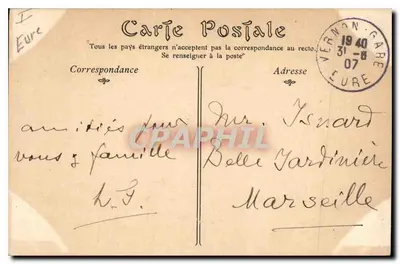 I
Eure
Carte Postale
Tous les pays étrangers n'acceptent pas la correspondance au recto.
Se renseigner à la poste
Correspondance
Adresse
VERNON-GARE
19 40
31 -8
07
EURE
amitiés pour
vous & famille
L. J.
Mr. Isnard
Belle Jardinière
Marseille
CPARHIL